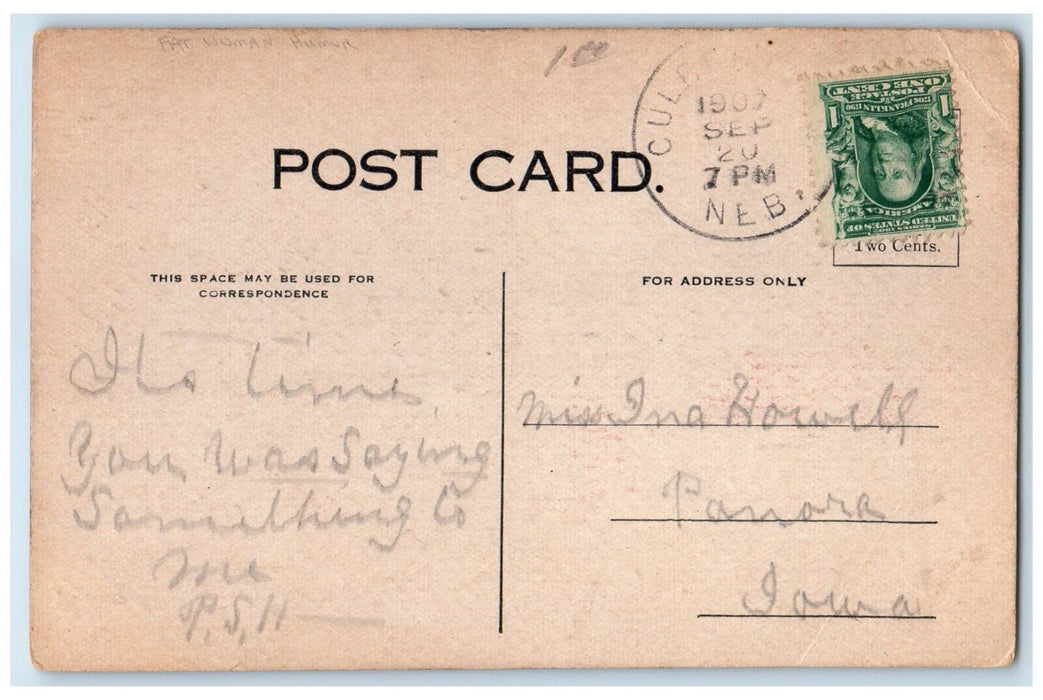 FAT WOMAN HUMOR
1 00
CUL
1907
SEP
20
7 PM
NEB.
POST CARD.
SERIES 1902
UNITED STATES OF
AMERICA
1706 FRANKLIN 1790
POSTAGE
1 ONE CENT 1
Two Cents.
THIS SPACE MAY BE USED FOR
CORRESPONDENCE
FOR ADDRESS ONLY
Its time
You was Saying
Something to
me
P.S. H
Miss Ina Howell
Panora
Iowa